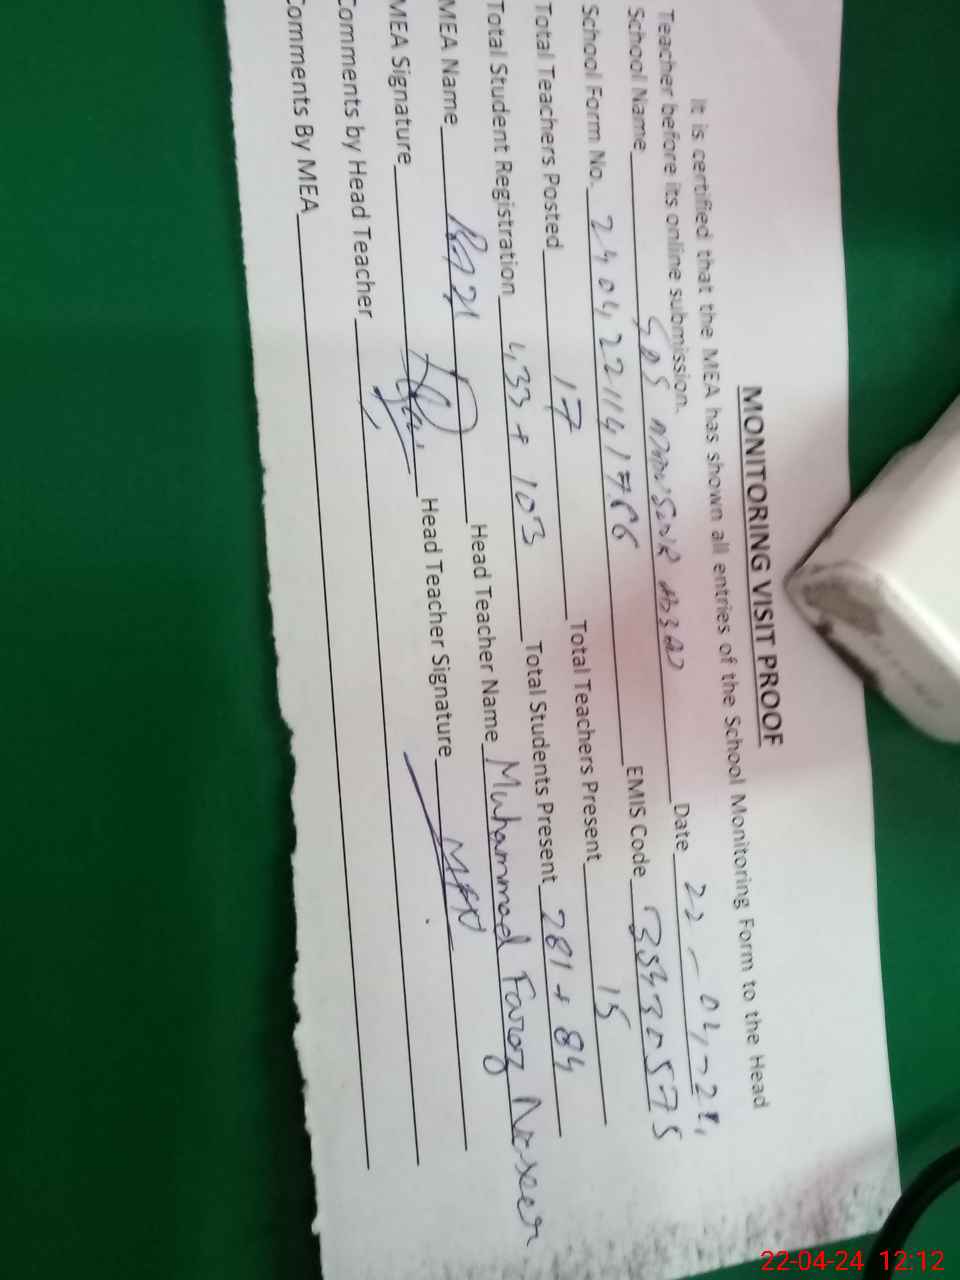 MONITORING VISIT PROOF
It is certified that the MEA has shown all entries of the School Monitoring Form to the Head
Teacher before its online submission.
School Name Date 22-04-24
School Form No. EMIS Code 35430575
Total Teachers Posted 17 Total Teachers Present 15
Total Student Registration 433 + 103 Total Students Present 281 + 84
MEA Name Head Teacher Name Muhammad Faroz Naseer
MEA Signature Head Teacher Signature MFN
Comments by Head Teacher
Comments By MEA
22-04-24 12:12